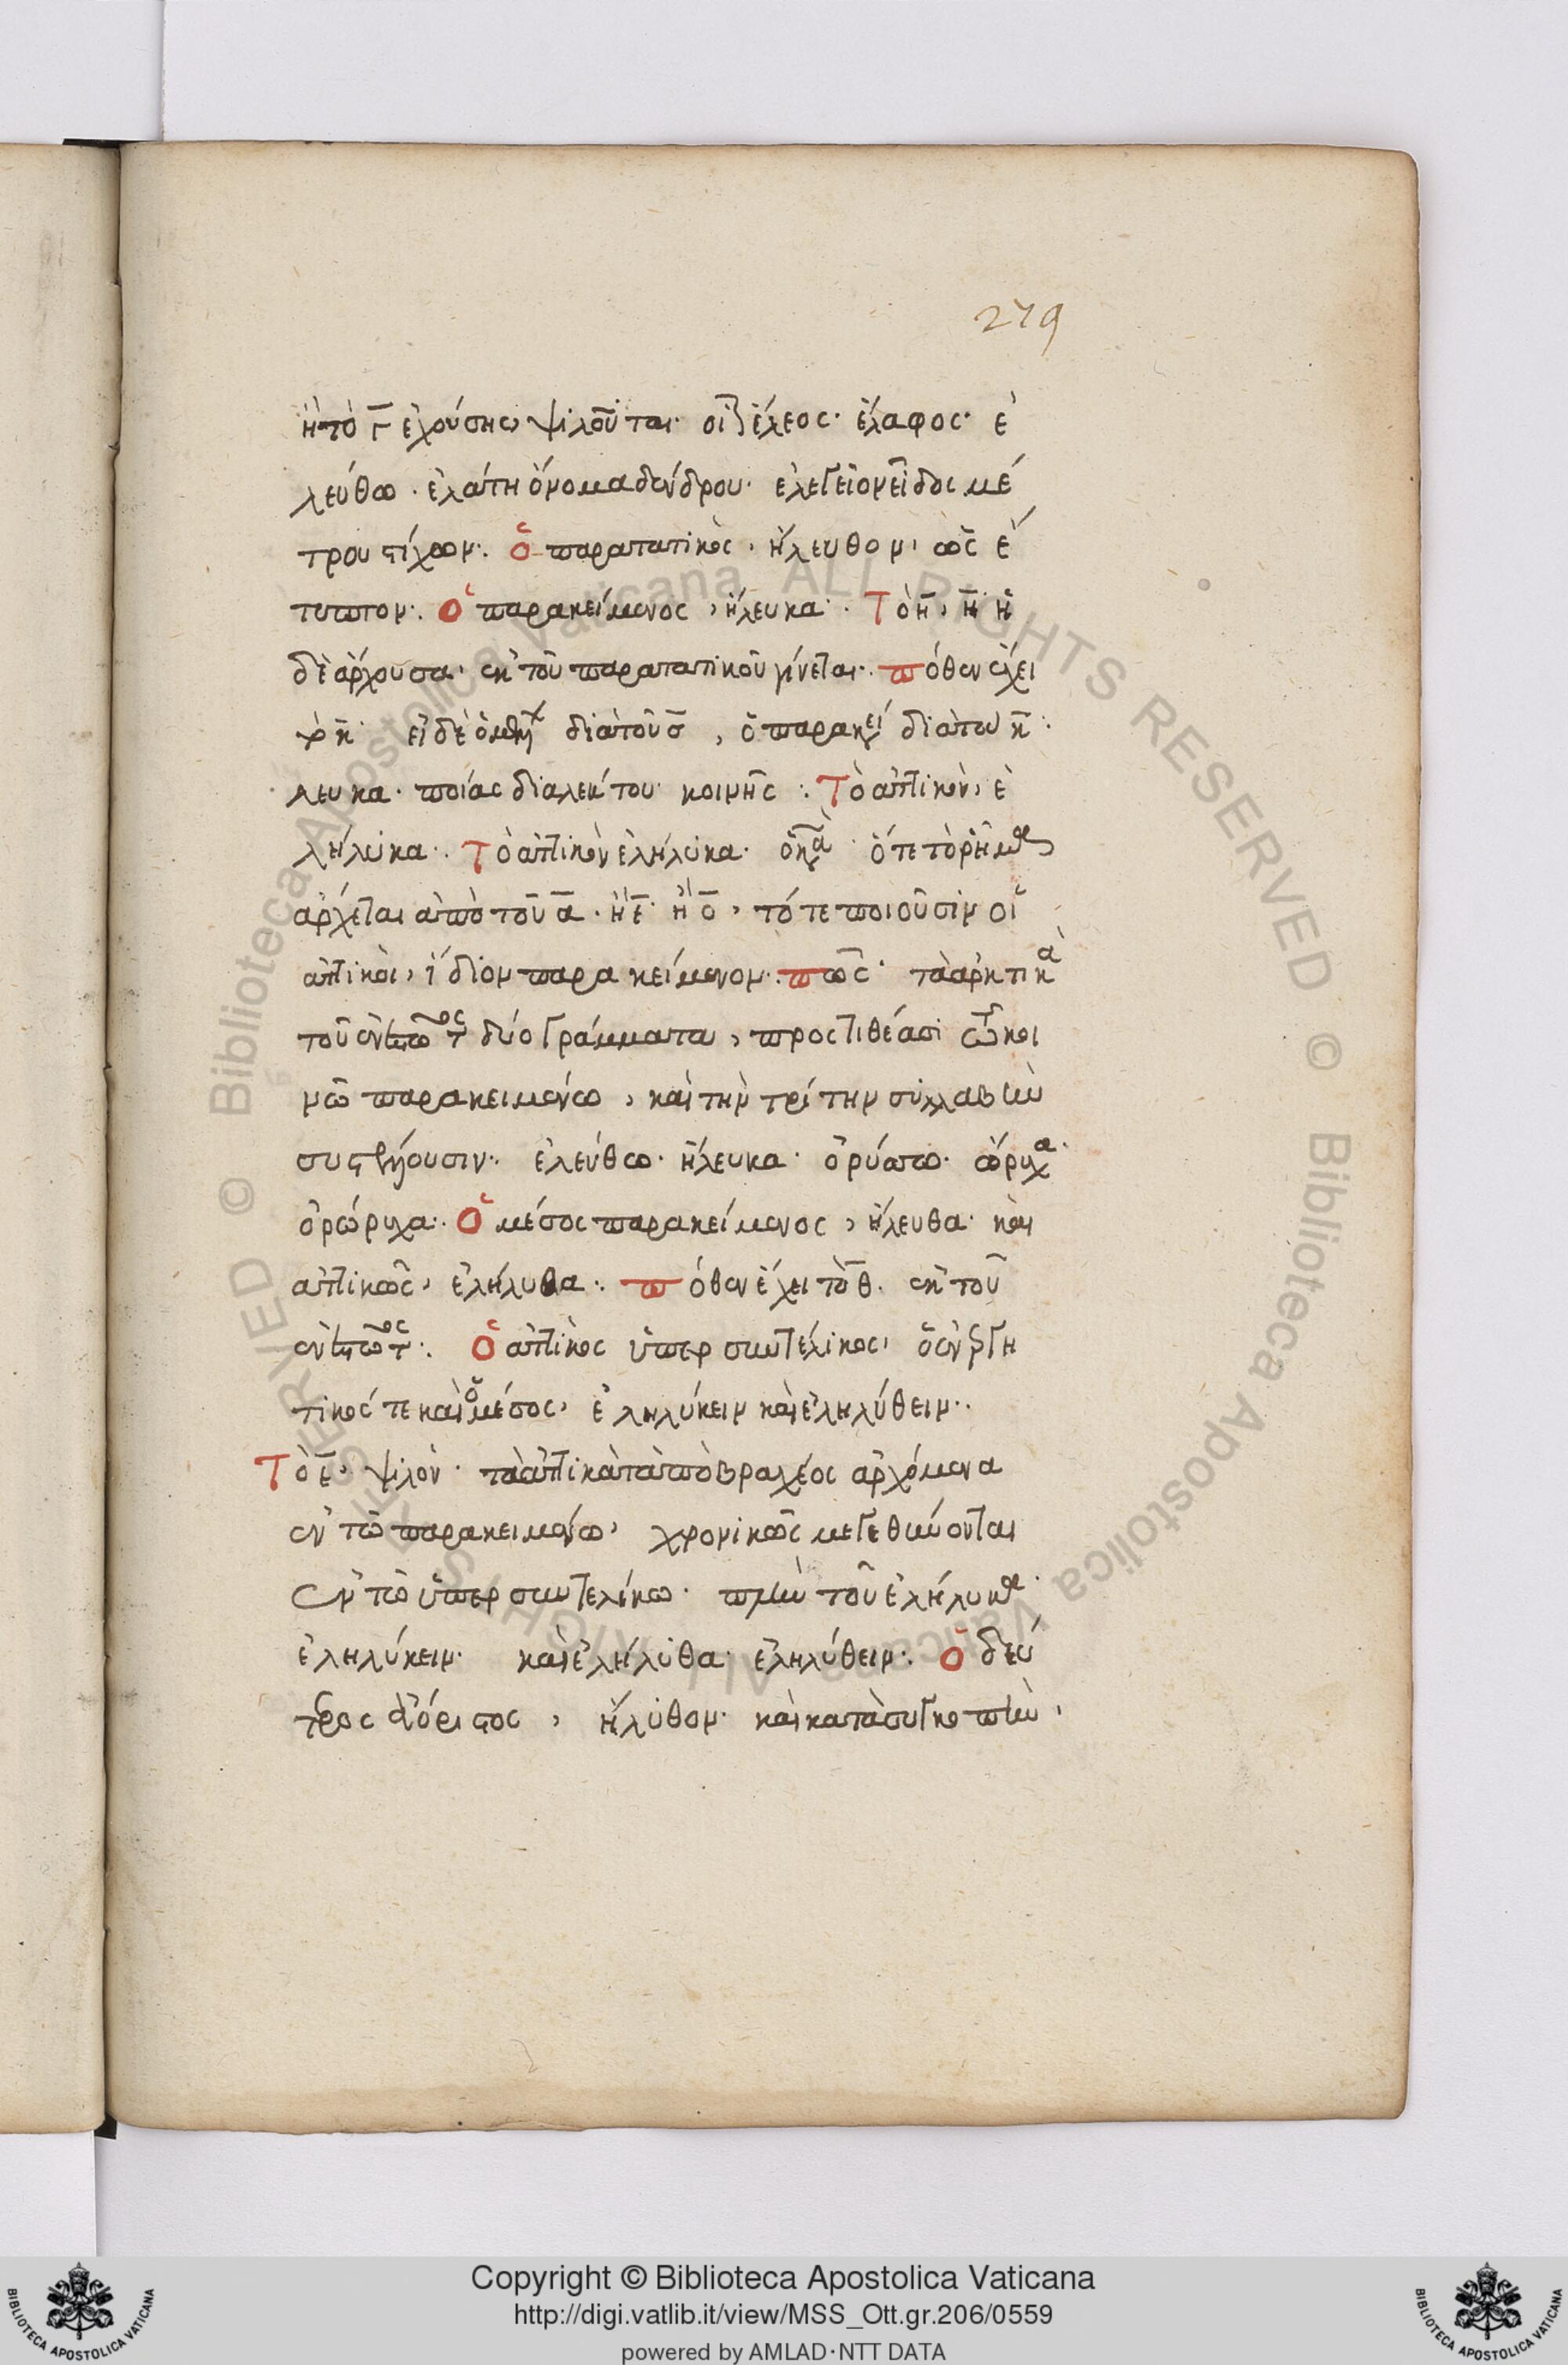 279
ἢ τὸ γ̄ ἐχούσης ψιλοῦται· οἷον ἔλεος· ἔλαφος· ἐ
λεύθω· ἐλάτη ὄνομα δένδρου· ἐλεγεῖον εἶδος μέ
τρου στίχων:· ὁ παρατατικὸς, ἤλευθον, ὡς ἔ
τυπτον:· ὁ παρακείμενος, ἤλευκα:· Τὸ η̄, η̄ ἡ
δὲ ἄρχουσα, ἐκ τοῦ παρατατικοῦ γίνεται:· πόθεν ἔχει
τὸ κ̄ εἰ δὲ ὁ διὰ τοῦ σ̄, ὁ παρακεί διὰ του κ̄:
λευκα· ποίας διαλέκτου κοινῆς:· Τὸ ἀττικὸν, ἐ
λήλυκα:· Τὸ ἀττικὸν ἐλήλυκα· ὅτε τὸ ῥῆμα
ἄρχεται ἀπὸ τοῦ ᾱ· ἢ ε̄· ἢ ο̄, τότε ποιοῦσιν οἱ
ἀττικοὶ, ἴδιον παρακείμενον:· πῶς· τὰ ἀρκτικὰ
τοῦ ἐνεστῶτος δύο γράμματα, προστιθέασι τῶ κοι
νῶ παρακειμένω, καὶ τὴν τρίτην συλλαβὴν
συστέλλουσιν:· ἐλεύθω· ἤλευκα· ὀρύττω· ὤρυχα·
ὀρώρυχα:· Ὁ μέσος παρακείμενος, ἤλευθα· καὶ
ἀττικῶς, ἐλήλυθα:· πόθεν ἔχει τὸ θ̄· ἐκ τοῦ
ἐνεστῶτος:· Ὁ ἀττικὸς ὑπερσυντελικος, ὁ ἐνεργη
τικός τε καὶ ὁ μέσος, ἐληλύκειν καὶ ἐληλύθειν:·
Τὸ ε̄, ψιλόν· τὰ ἀττικὰ τὰ ἀπὸ βραχέος ἀρχόμενα
ἐν τῶ παρακειμένω, χρονικῶς μεγεθύνονται
ἐν τῶ ὑπερσυντελίκω· πλὴν τοῦ ἐλήλυκα·
ἐληλύκειν· καὶ ἐλήλυθα· ἐληλύθειν:· Ὁ δεύ
τερος ἀόριστος, ἤλυθον· καὶ κατὰ συγκοπὴν,
Copyright © Biblioteca Apostolica Vaticana
http://digi.vatlib.it/view/MSS_Ott.gr.206/0559
powered by AMLAD·NTT DATA